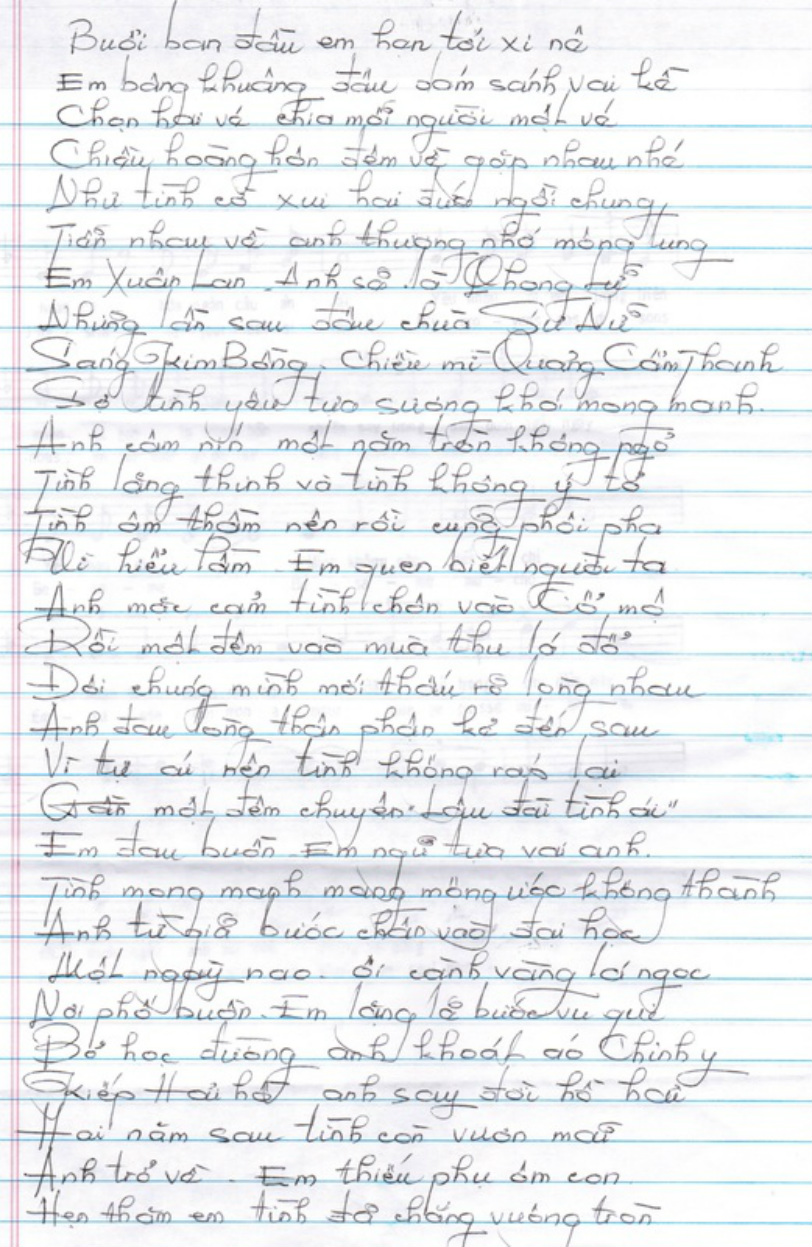 Buổi ban đầu em hẹn tới xi nê
Em bâng khuâng đâu dám sánh vai kề
Chọn hai vé chia mỗi người một vé
Chiều hoàng hôn đêm về gặp nhau nhé
Như tình cờ xui hai đứa ngồi chung
Tiễn nhau về anh thương nhớ mông lung
Em Xuân Lan. Anh sẽ là Phong tử
Những lần sau đâu chùa Sư Nữ
Sáng Kim Bồng, chiều mì Quảng Cẩm Thanh
Sợ tình yêu tựa sương khói mong manh.
Anh câm nín một năm tròn không ngỏ
Tình lặng thinh và tình không ý tỏ
Tình âm thầm nên rồi cũng phôi pha
Vì hiểu lầm. Em quen biết người ta
Anh mặc cảm tình chôn vào Cổ mộ
Rồi một đêm vào mùa thu lá đổ
Đôi chúng mình mới thấu rõ lòng nhau
Anh đau lòng thân phận kẻ đến sau
Vì tự ái nên tình không ráp lại
Gần một đêm chuyện "Lâu đài tình ái"
Em đau buồn. Em ngủ tựa vai anh.
Tình mong manh mang mộng ước không thành
Anh từ giã bước chân vào đại học
Một ngày nao. ôi cành vàng lá ngọc
Nơi phố buồn. Em lặng lẽ bước vu qui
Bỏ học đường anh khoát áo Chinh y
Kiếp Hải hồ anh say đời hồ hải
Hai năm sau tình còn vươn mãi
Anh trở về. Em thiếu phụ ôm con.
Hẹn thăm em tình đã chẳng vuông tròn